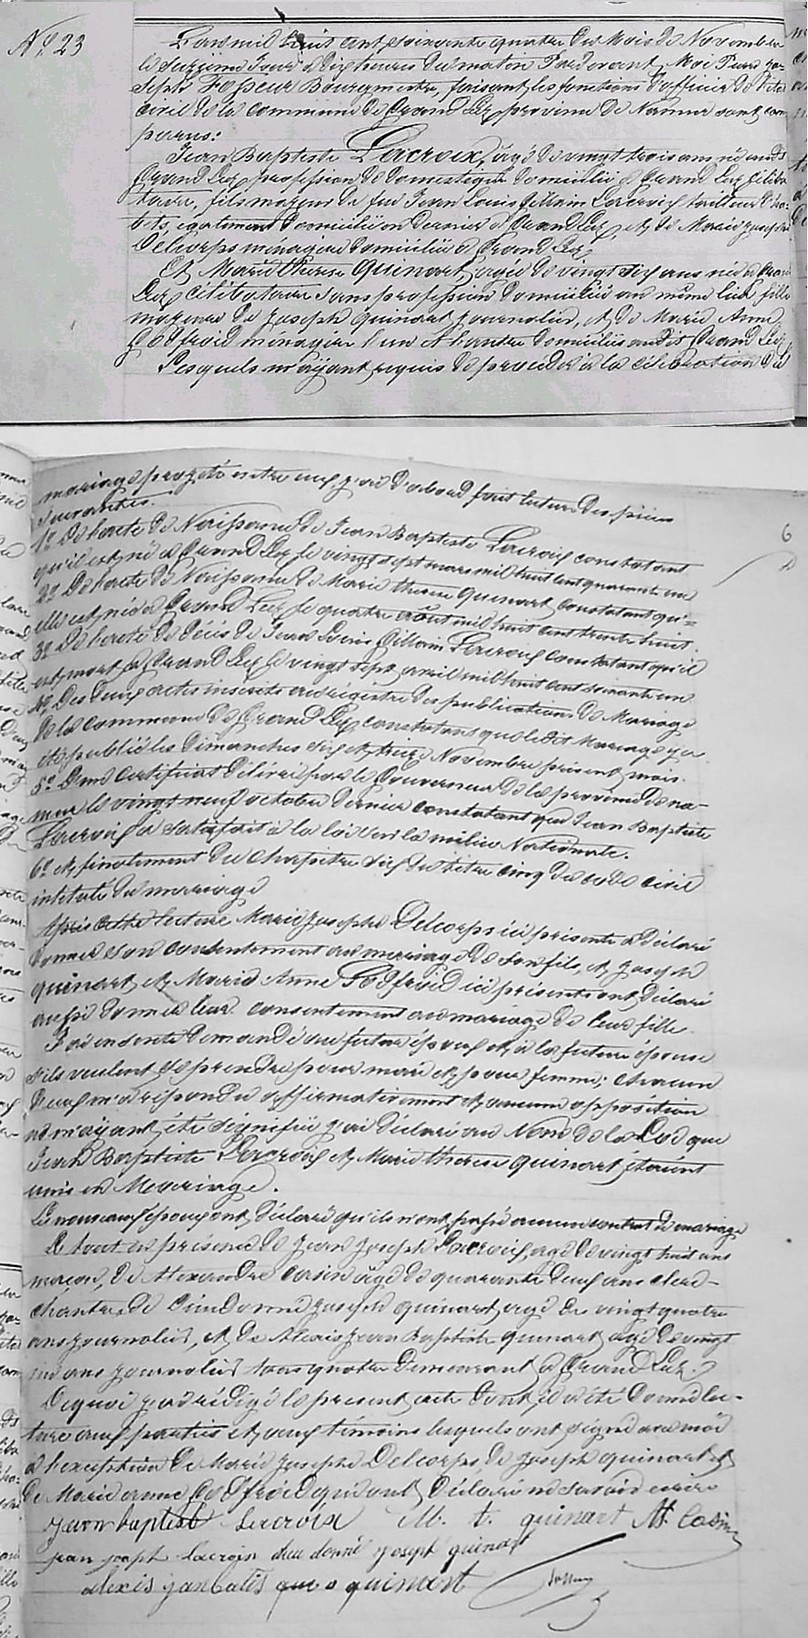 N°. 23
L'an mil huit cent soixante quatre du Mois de Novembre
le seizième jour à dix heures du matin Pardevant Moi Pierre Jo-
seph Fosseur Bourgmestre, faisant les fonctions d'officier de l'état
civil de la commune de Grand Lez province de Namur sont com
parus:
Jean Baptiste Lacroix, âgé de vingt trois ans né audit
Grand Lez profession de domestique domicilié à Grand Lez céliba
taire, fils majeur de feu Jean Louis Gillain Lacroix tailleur d'ha-
bits, également domicilié en dernier à Grand Lez, et de Marie Josephe
Delcorps ménagère domiciliée à Grand Lez,
Et Marie therese Quinart, agée de vingt six ans née à Grand
Lez célibataire sans profession domiciliée au même lieu fille
majeure de Joseph quinart journalier, et de Marie Anne
Godfroid ménagère l'un et l'autre domiciliés audit Grand Lez
Lesquels m'ayant requis de procéder à la célébration du
mariage projeté entre eux, j'ai d'abord fait lecture des pièces
suivantes.
1° De l'acte de Naissance de Jean Baptiste Lacroix constatant
qu'il est né à Grand Lez le vingt sept mars mil huit cent quarante un
2° De l'acte de Naissance de Marie therese Quinart constatant qu'=
elle est née à Grand Lez le quatre août mil huit cent trente huit.
3° De l'acte de décès de Jean Louis Gillain Lacroix constatant qu'il
est mort à Grand Lez le vingt sept avril mil huit cent soixante un
4° Des deux actes inscrits au régistre des publications de Mariage
de la commune de Grand Lez constatant que ledit Mariage y a
été publié les dimanches six et treize Novembre présent mois.
5° D'un certificat délivré par le Gouverneur de la province de na-
mur le vingt neuf octobre dernier constatant que Jean Baptiste
Lacroix a satisfait à la loi sur la milice Nationale.
6° et finalement du chapitre six du titre cinq du code civil
intitulé du mariage
Après cette lecture Marie Josephe Delcorps ici présente a déclaré
donner son consentement au mariage de son fils, et Joseph
quinart et Marie Anne Godfroid ici présents ont déclaré
aussi donner leur consentement au mariage de leur fille.
J'ai ensuite demandé au futur époux et à la future épouse
s'ils veulent se prendre pour mari et pour femme; chacun
d'eux m'a répondu affirmativement et aucune opposition
ne m'ayant été signifiée j'ai déclaré au Nom de la Loi que
Jean Baptiste Lacroix et Marie therese quinart étaient
unis en Mariage.
Les nouveaux époux ont déclaré qu'ils n'ont passé aucun contrat de mariage
Le tout en présence de Jean Joseph Lacroix, agé de vingt huit ans
maçon, de Alexandre Cosin âgé de quarante deux ans clerc-
chantre, de Dieudonné Joseph quinart, agé de vingt quatre
ans journalier, et de Alexis Jean Baptiste quinart agé de vingt
ans journalier tous quatre demeurant à Grand Lez.
De quoi j'ai rédigé le présent acte dont il a été donné lec-
ture aux parties et aux témoins lesquels ont signé avec moi
à l'exception de Marie Josephe Delcorps de Joseph quinart et
de Marie anne Godfroid qui ont déclaré ne savoir écrire
Jean baptist Lacroix M. t. quinart At. Cosin
jean joseph lacroix dieu donné joseph quinart
alexis janbatis quinart
6